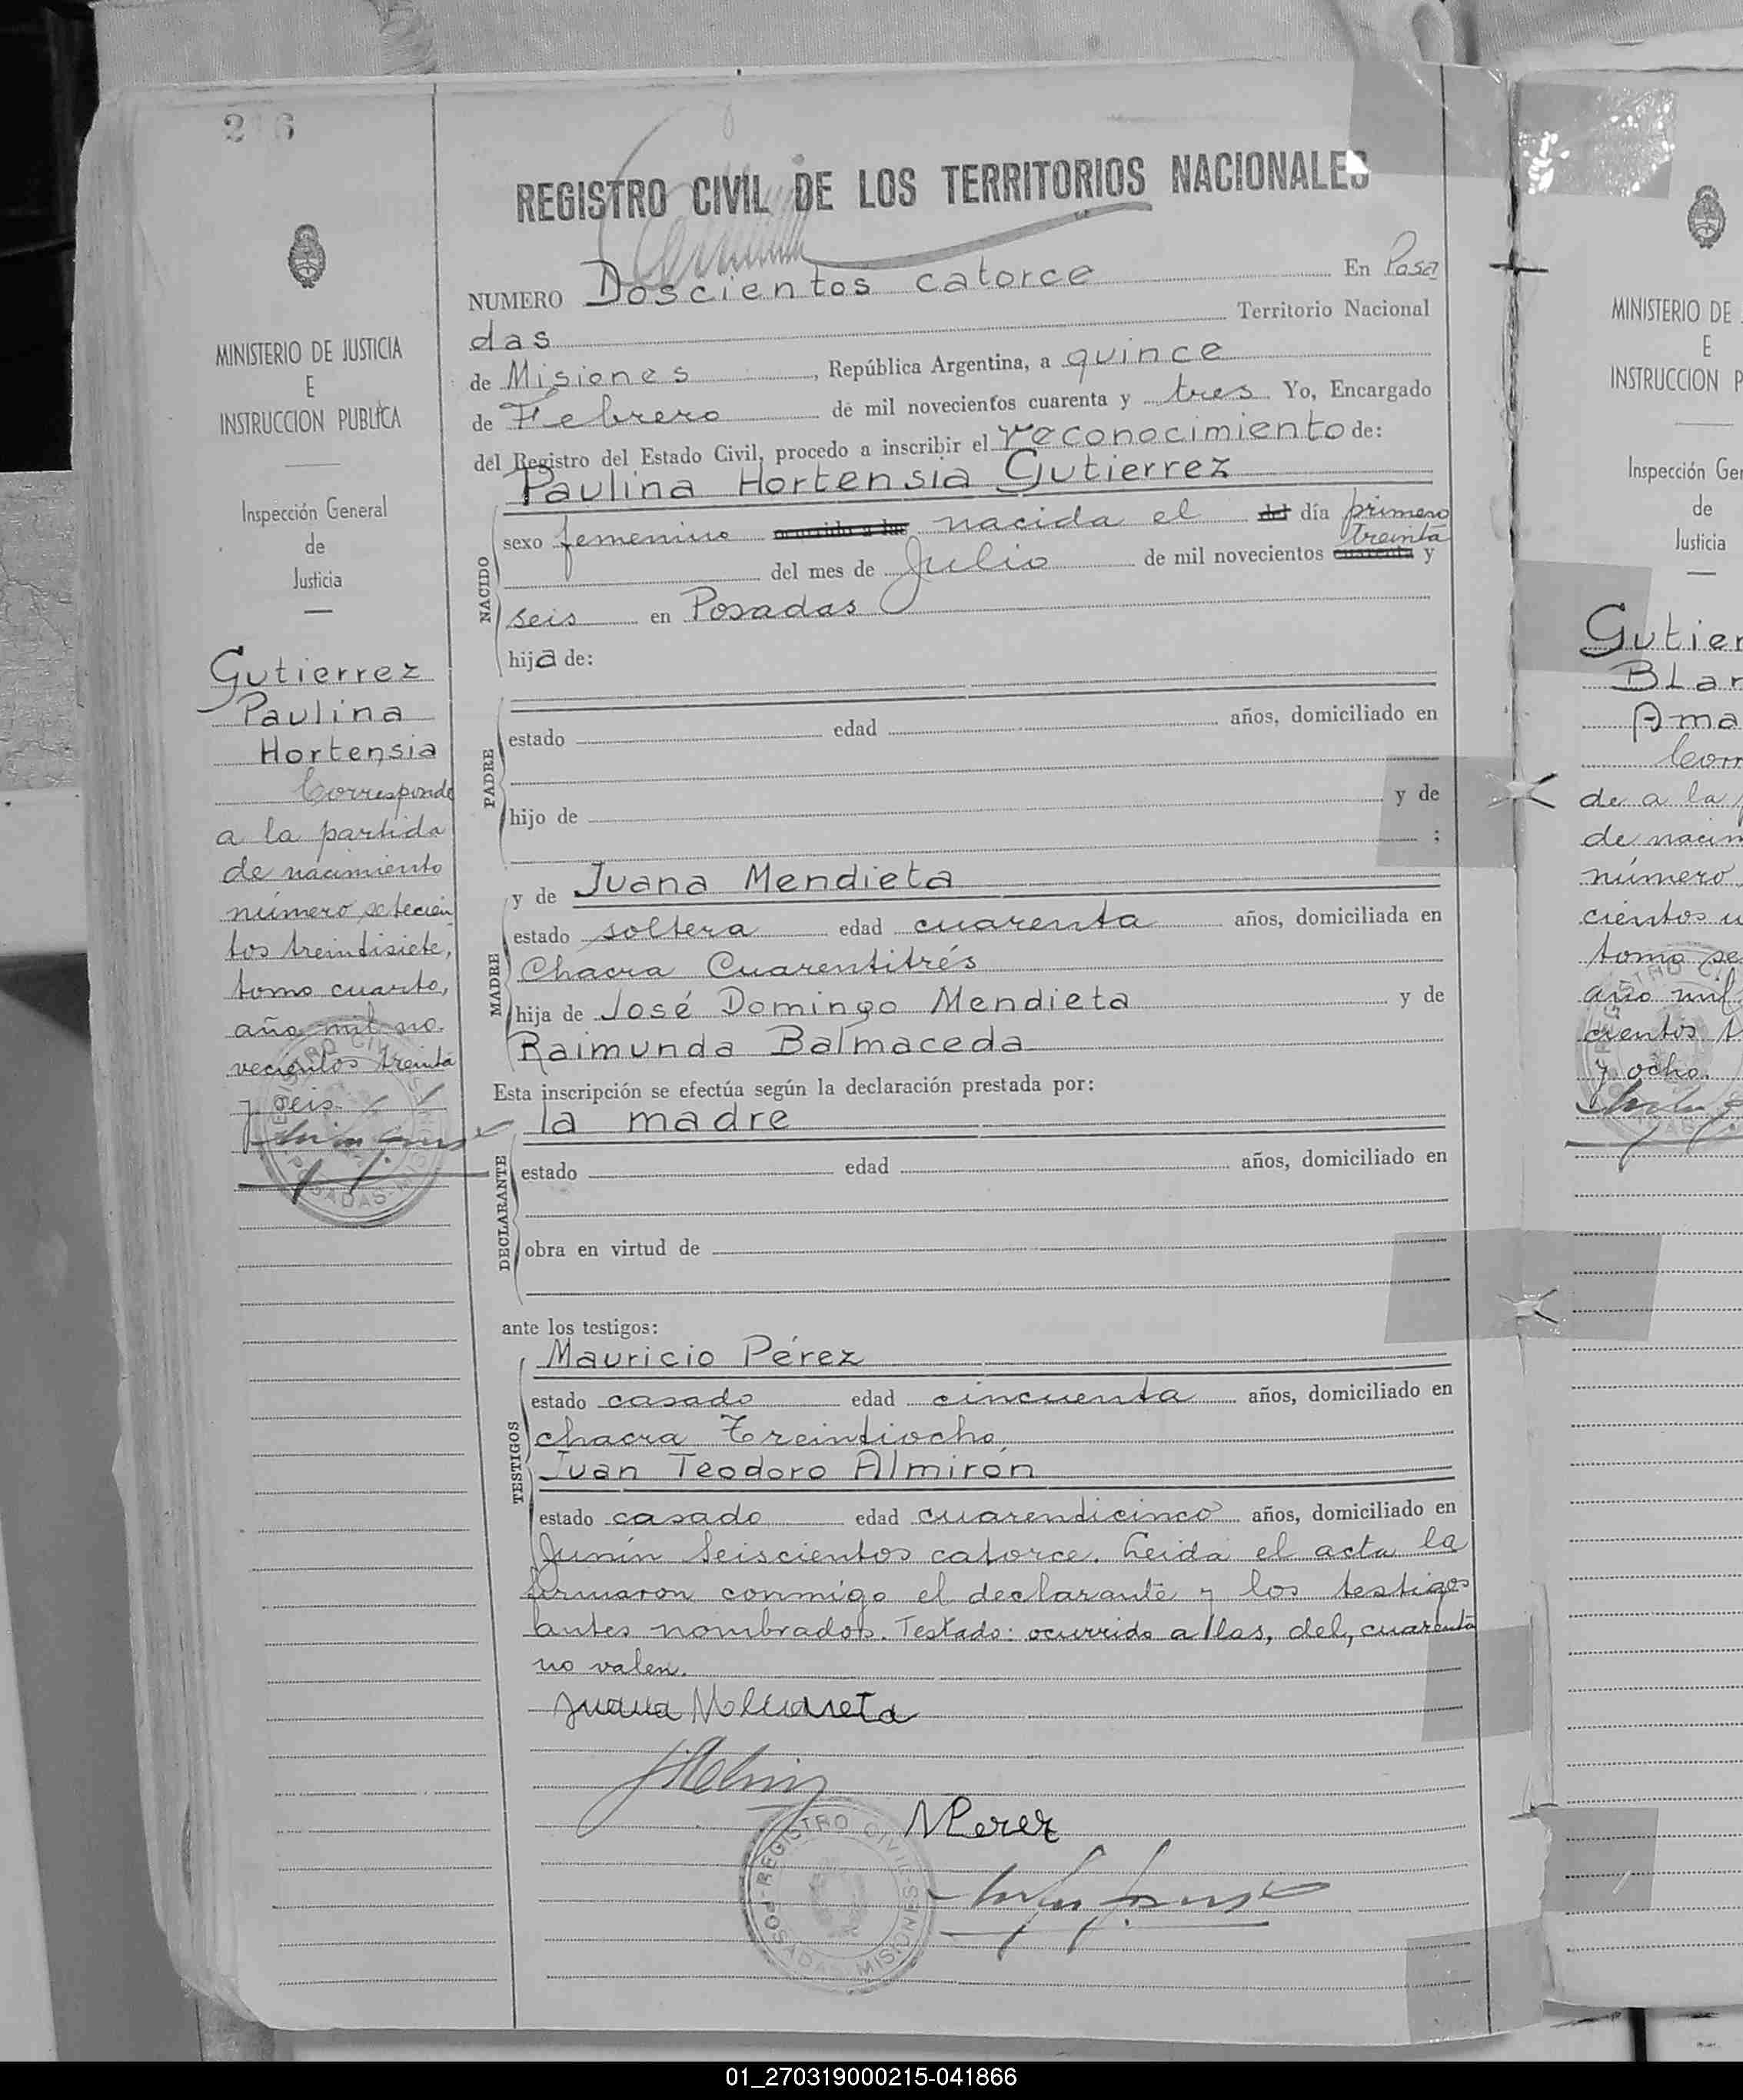 2 6
REGISTRO CIVIL DE LOS TERRITORIOS NACIONALES
NUMERO Doscientos catorce En Posa
das Territorio Nacional
de Misiones, República Argentina, a quince
de Febrero de mil novecientos cuarenta y tres Yo, Encargado
del Registro del Estado Civil, procedo a inscribir el reconocimiento de:
Paulina Hortensia Gutierrez
NACIDO
sexo femenino ocurrido a las nacida el del día primero
treinta
del mes de Julio de mil novecientos cuarenta y
seis en Posadas
hija de:
PADRE
estado edad años, domiciliado en
hijo de y de
;
y de Juana Mendieta
MADRE
estado soltera edad cuarenta años, domiciliada en
Chacra Cuarentitrés
hija de José Domingo Mendieta y de
Raimunda Balmaceda
Esta inscripción se efectúa según la declaración prestada por:
la madre
DECLARANTE
estado edad años, domiciliado en
obra en virtud de
ante los testigos:
TESTIGOS
Mauricio Pérez
estado casado edad cincuenta años, domiciliado en
chacra Treintiocho,
Juan Teodoro Almirón
estado casado edad cuarendicinco años, domiciliado en
Junín Seiscientos catorce. Leida el acta la
firmaron conmigo el declarante y los testigos
antes nombrados. Testado: ocurrido a llas, del, cuarenta
no valen.
Juana Mendieta
MPerez
REGISTRO CIVIL POSADAS MISIONES
MINISTERIO DE JUSTICIA
E
INSTRUCCION PUBLICA
Inspección General
de
Justicia
Gutierrez
Paulina
Hortensia
Corresponde
a la partida
de nacimiento
número setecien
tos treintisiete,
tomo cuarto,
año mil no-
vecientos treinta
y seis.
MINISTERIO DE
E
INSTRUCCION P
Inspección Ger
de
Justicia
Gutier
BLan
Ama
Corr
de a la p
de nacim
número
cientos u
tomo se
año mil
cientos t
y ocho.
01_270319000215-041866